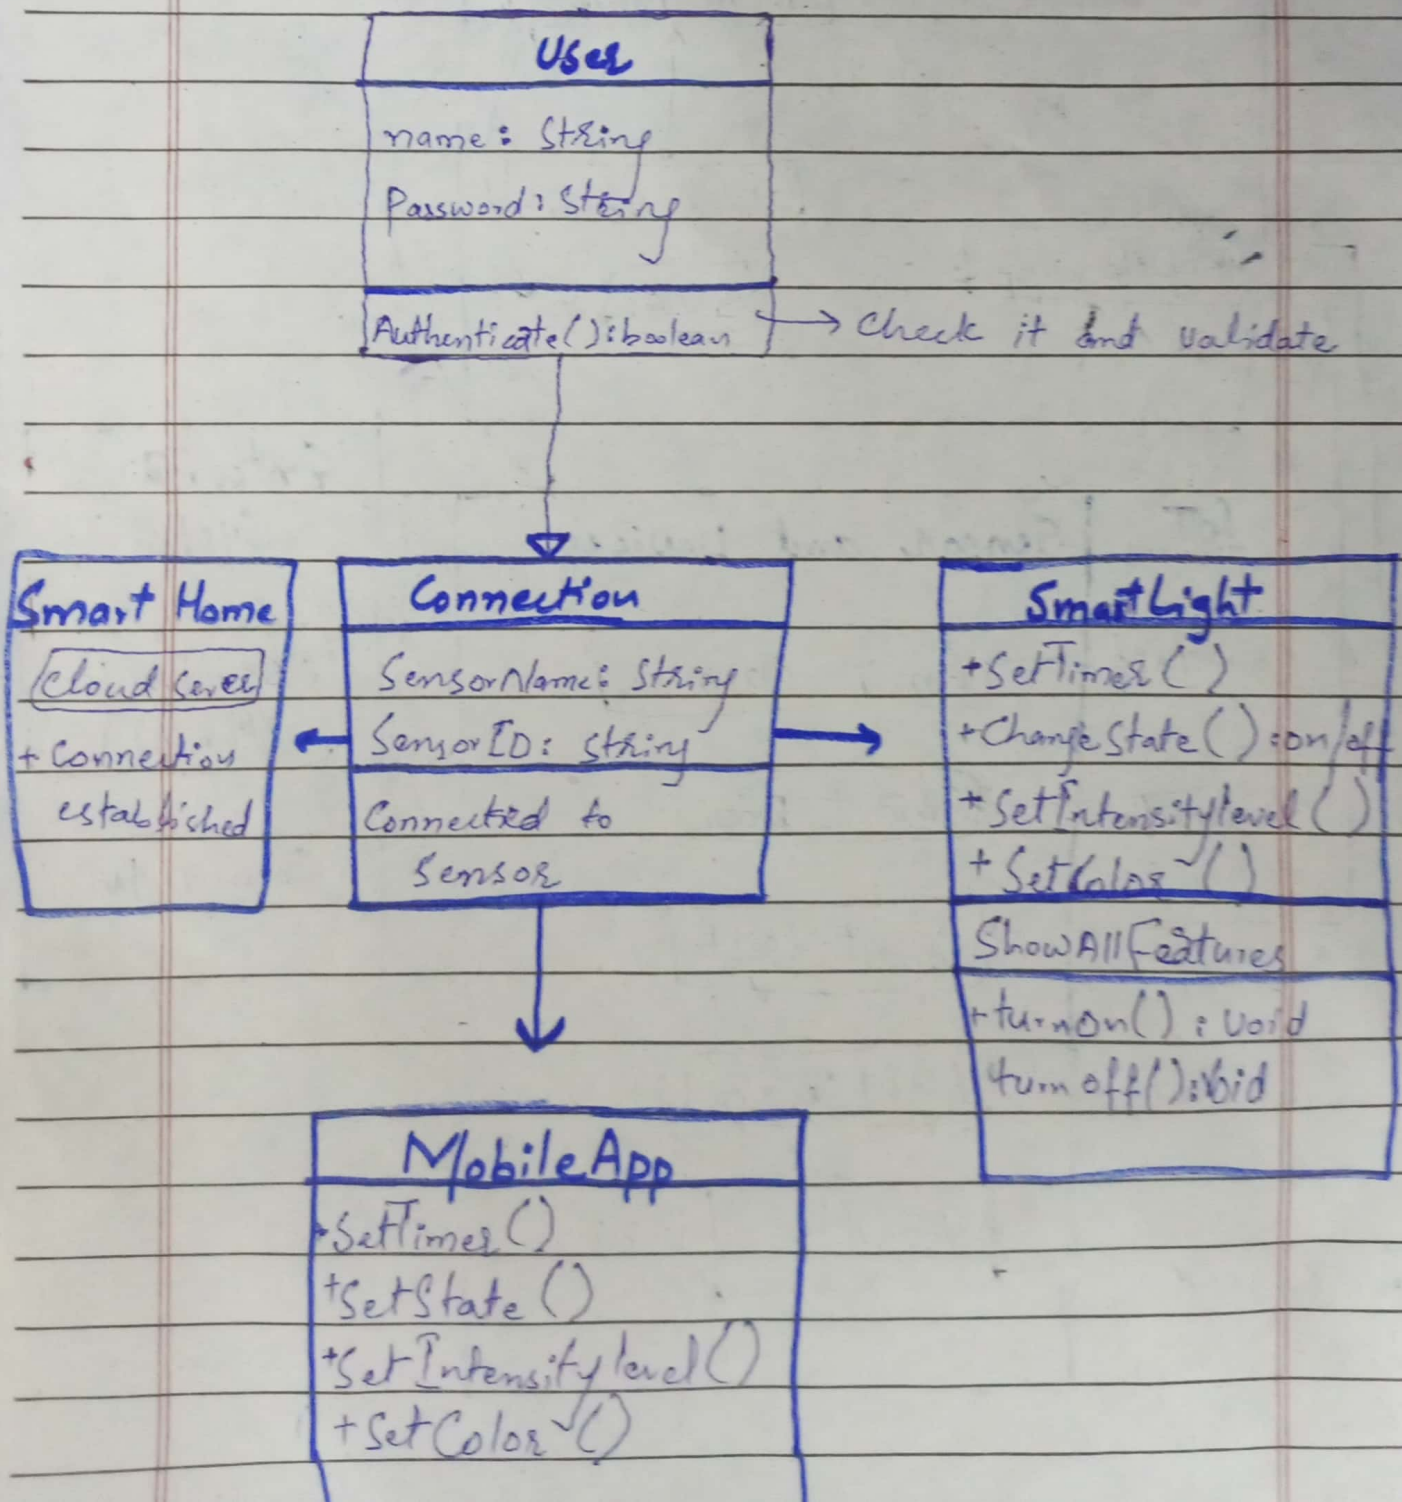 User
name: String
Password: String
Authenticate(): boolean → Check it and validate
Smart Home
Cloud Sever
+ Connection
established
Connection
SensorName: String
SensorID: String
Connected to
Sensor
SmartLight
+SetTimer()
+ChangeState(): on/off
+SetIntensitylevel()
+SetColor()
ShowAllFeatures
+turnOn(): void
turnoff(): void
MobileApp
+SetTimer()
+SetState()
+SetIntensitylevel()
+SetColor()